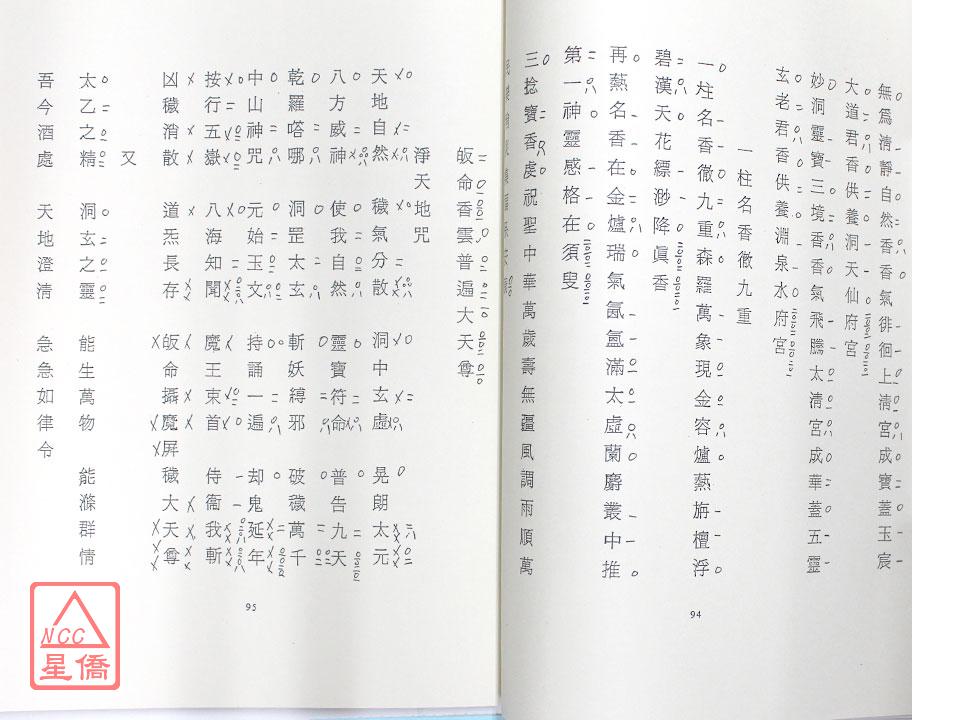 無爲清靜自然香香氣徘徊上清宮成寶蓋玉宸
大道君香供養洞天仙府宮
妙洞靈寶三境香香氣飛騰太清宮成華蓋五靈
玄老君香供養淵泉水府宮
一柱名香徹九重
一柱名香徹九重森羅萬象現金容爐爇旃檀浮
碧漢天花縹渺降眞香
再爇名香在金爐瑞氣氤氳滿太虛蘭麝叢中推
第一神靈感格在須叟
三捻寶香虔祝聖中華萬歲壽無疆風調雨順萬
94
皈命香雲普遍大天尊
淨天地咒
天地自然 穢氣分散 洞中玄虛 晃朗太元
八方威神 使我自然 靈寶符命 普告九天
乾羅嗒哪 洞罡太玄 斬妖縛邪 破穢萬千
中山神咒 元始玉文 持誦一遍 却鬼延年
按行五嶽 八海知聞 魔王束首 侍衞我斬
凶穢消散 道炁長存 皈命攝魔屏 穢大天尊
又
太乙之精 洞玄之靈 能生萬物 能滌群情
吾今酒處 天地澄清 急急如律令
95
NCC
星僑